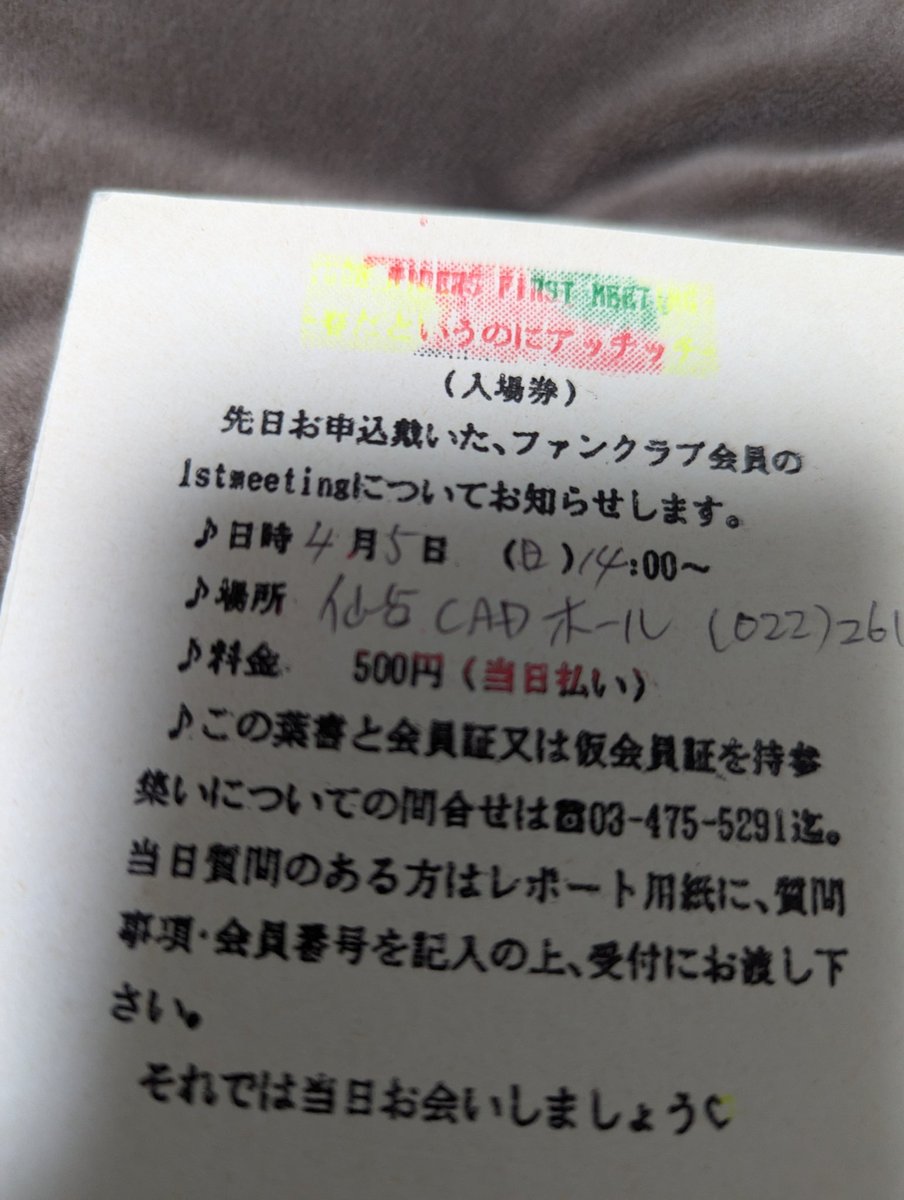 FIRST MEETING
というのにアッチッチ
(入場券)
先日お申込戴いた、ファンクラブ会員の
1stmeetingについてお知らせします。
♪日時 4月5日 (日)14:00〜
♪場所 仙台CADホール (022)261
♪料金 500円(当日払い)
♪この葉書と会員証又は仮会員証を持参
集いについての問合せは☎03-475-5291迄。
当日質問のある方はレポート用紙に、質問
事項・会員番号を記入の上、受付にお渡し下
さい。
それでは当日お会いしましょう♡